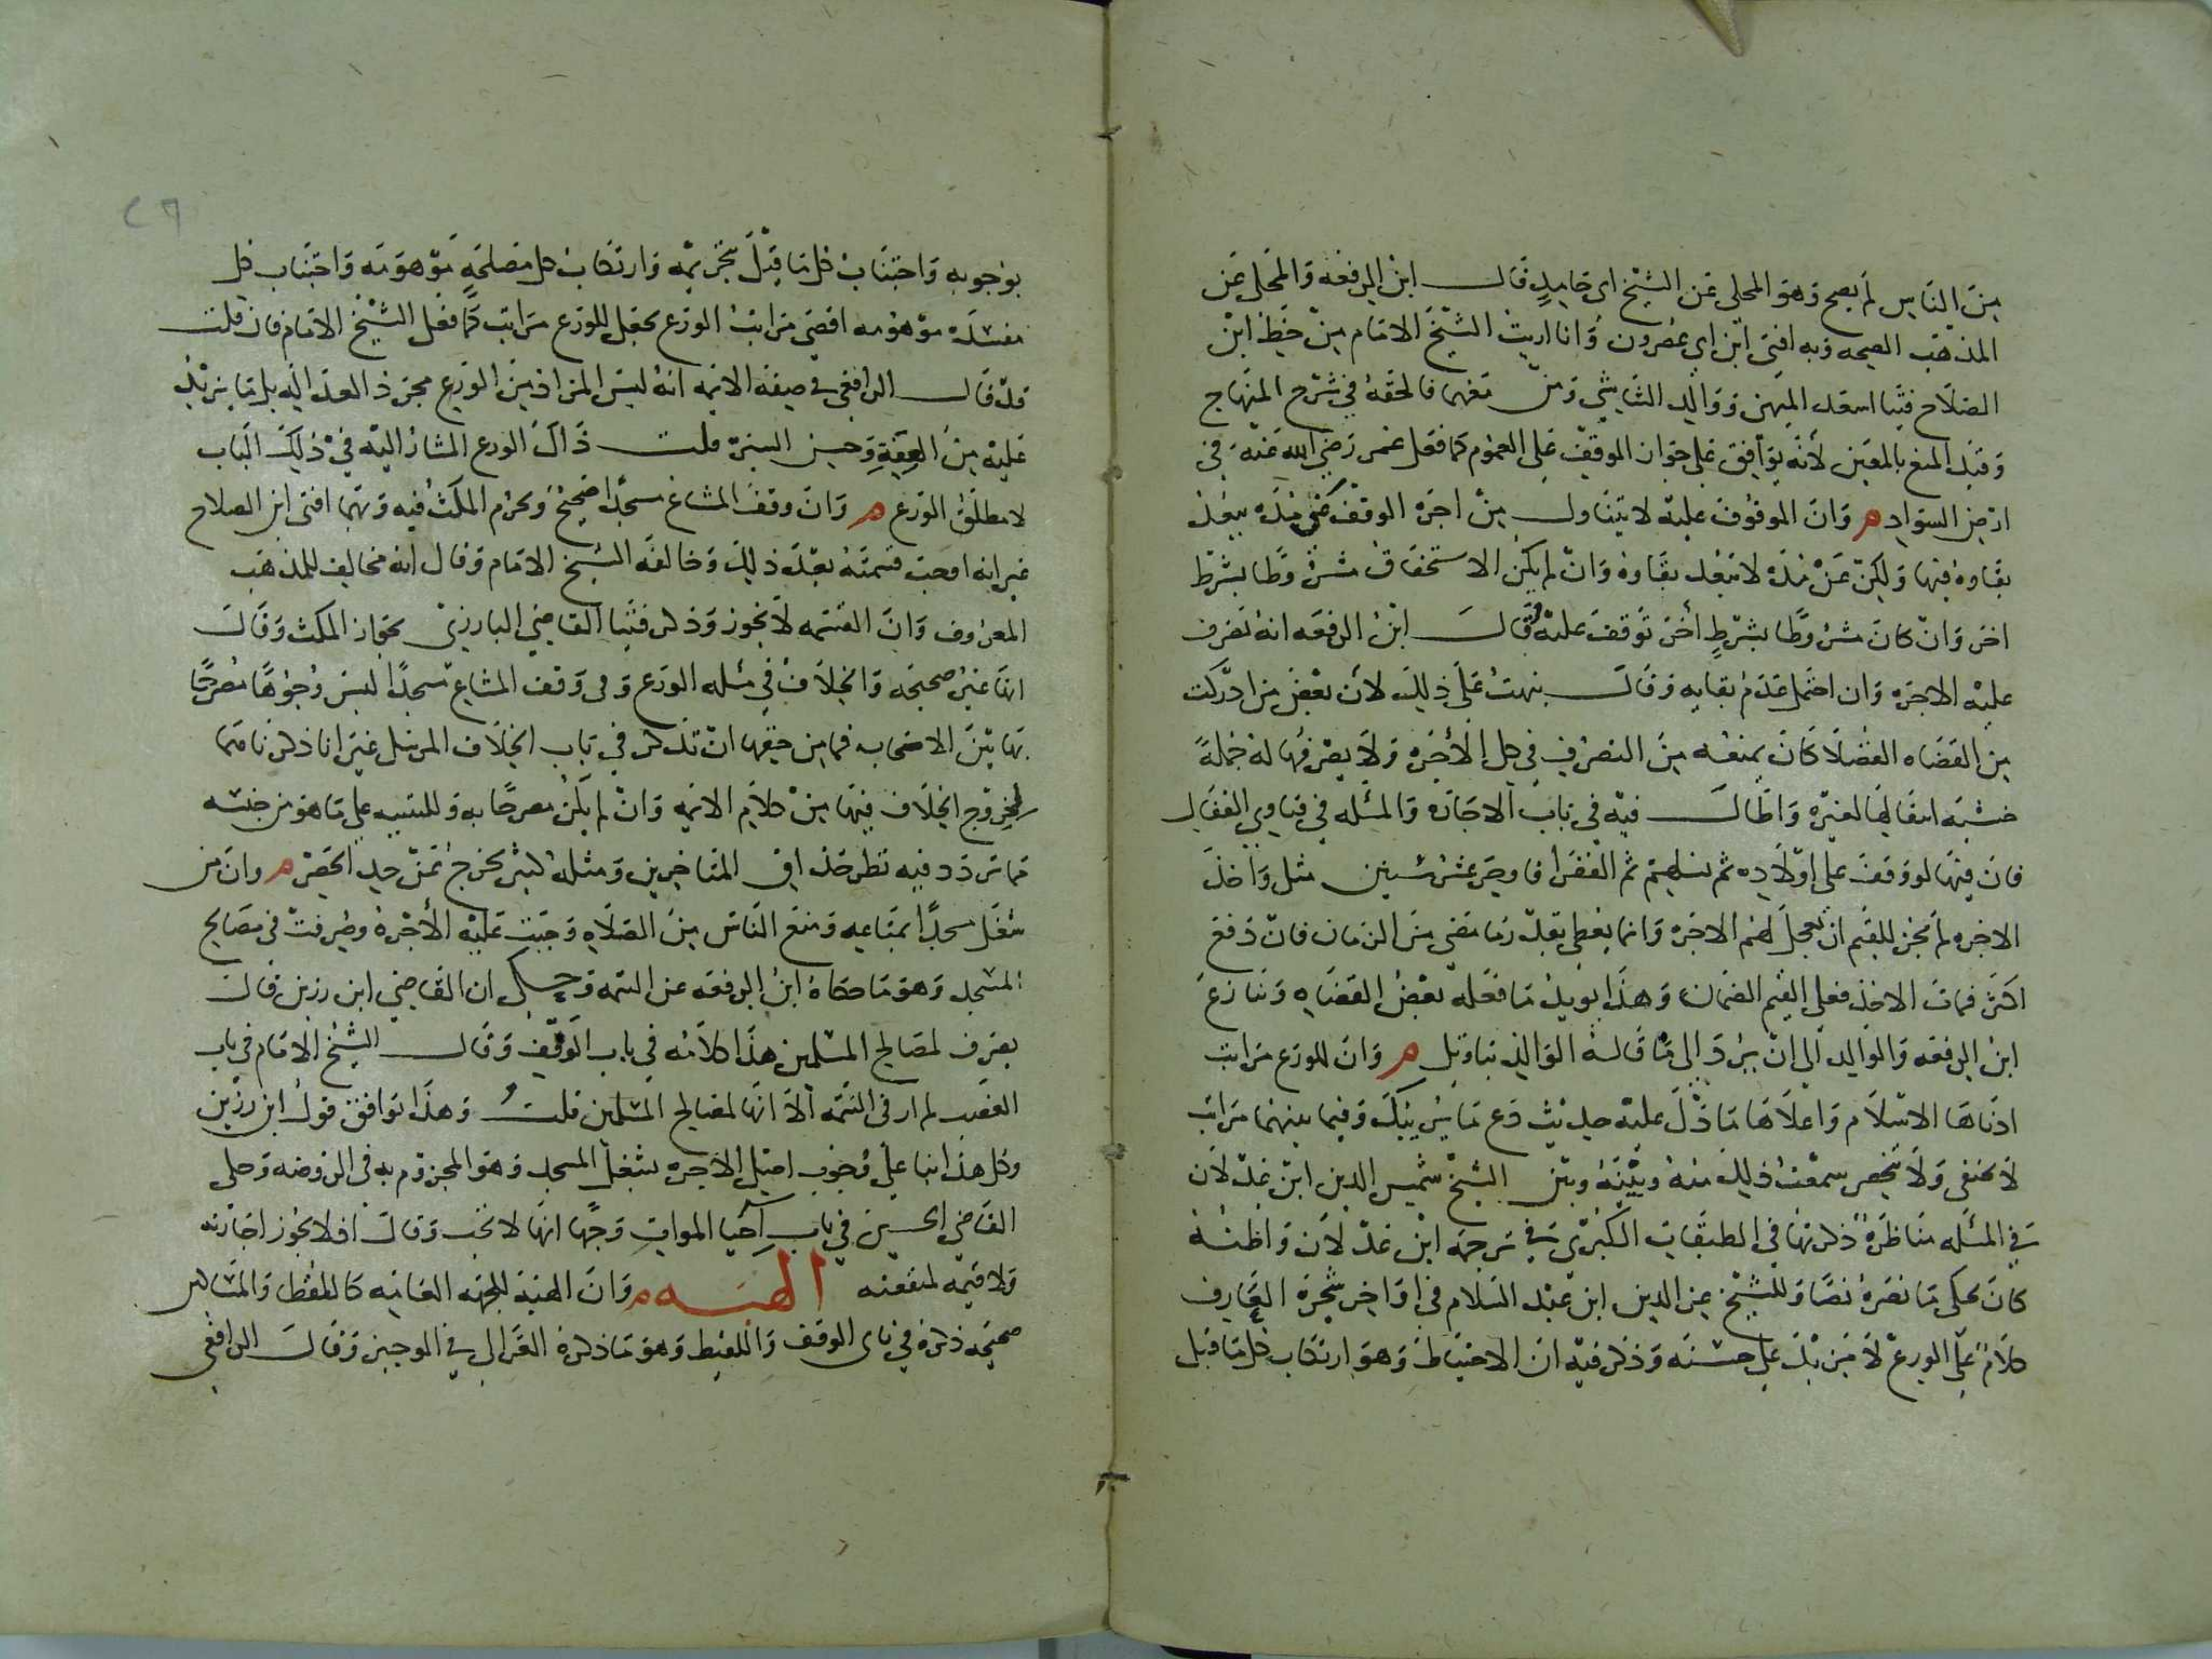 من الناس لم يصح وهو المحلى عن الشيخ ابى حامد قال ابن الرفعه والمحلى عن
المذهب الصحه وبه افتى ابن ابى عصرون وانا اريت الشيخ الامام من خط ابن
الصلاح فتيا اسعد الميهنى ووالد الشاشى ومن معهما فالحقه فى شرح المنهاج
وقيد المنع بالمعين لانه يوافق على جواز الموقف على العموم كما فعل عمر رضى الله عنه فى
ارض السواد وان الموقوف عليه لا يتناول من اجره الوقف عن مده يبعد
بقاوه فيها ولكن عن مده لا يبعد بقاوه وان لم يكن الاستحقاق مشروطا بشرط
اخر وان كان مشروطا بشرط اخر توقف عليه قال ابن الرفعه انه تصرف
عليه الاجره وان احتمل عدم بقايه وقال نبهت على ذلك لان بعض من ادركت
من القضاه الفضلا كان يمنعه من التصرف فى كل الاجره ولا يصرفها له جملة
خشيه انتقالها لغيره واطال فيه فى باب الاجاره والمسله فى فتاوى القفال
فان فيها لو وقف على اولاده ثم نسلهم ثم الفقرا فاوجر عشر سنين مثل واخذ
الاجره لم يجز للقيم ان يعجل لهم الاجره وانما يعطى بقدر ما مضى من الزمان فان دفع
اكثر فمات الاخذ فعلى القيم الضمان وهذا يويد ما فعله بعض القضاه ونازع
ابن الرفعه والوالد الى ان يرد الى ما قاله الوالد بتاويل وان للورع مراتب
ادناها الاسلام واعلاها ما دل عليه حديث دع ما يريبك وفيما بينهما مراتب
لا تخفى ولا تنحصر سمعت ذلك منه وبينه وبين الشيخ شمس الدين ابن عدلان
فى المسله مناظرة ذكرتها فى الطبقات الكبرى فى ترجمه ابن عدلان واظنه
كان يحكى ما نصره نصا وللشيخ عز الدين ابن عبد السلام فى اواخر شجره المعارف
كلام على الورع لا مزيد على حسنه وذكر فيه ان الاحتياط وهو ارتكاب كل ما قيل
بوجوبه واجتناب كل ما قيل بتحريمه وارتكاب كل مصلحه موهومه واجتناب كل
مفسده موهومه اقصى مراتب الورع بجعل للورع مراتب كما فعل الشيخ الامام فان قلت
قد قال الرافعى فى صفه الايمه انه ليس المراد من الورع مجرد العداله بل ما يزيد
عليه من العفة وحسن السيره قلت ذاك الورع المشار اليه فى ذلك الباب
لا مطلق الورع وان وقف المشاع مسجدا صحيح ويحرم المكث فيه وبهما افتى ابن الصلاح
غير انه اوجب قسمته بعد ذلك وخالفه الشيخ الامام وقال انه مخالف للمذهب
المعروف وان القسمه لا تجوز وذكر فتيا القاضى البارزى بجواز المكث وقال
انها غير صحيحه والخلاف فى مسله الورع وفى وقف المشاع مسجدا ليس وجوها مصرحا
بها بين الاصحاب فما من حقها ان تذكر فى باب الخلاف المرسل غير انا ذكرناهما
لخروج الخلاف فيها من كلام الايمه وان لم يكن مصرحا به وللتنبيه على ما هو من جنسه
مما تردد فيه نظر حذاق المتاخرين ومثله كثير يخرج عن حد الحصر وان من
شغل مسجدا بمتاعه ومنع الناس من الصلاه وجبت عليه الاجره وصرفت فى مصالح
المسجد وهو ما حكاه ابن الرفعه عن التتمه وحكى ان القاضى ابن رزين قال
يصرف لمصالح المسلمين هذا كلامه فى باب الوقف وقال الشيخ الامام فى باب
الغصب لم ار فى التتمه الا انها لمصالح المسلمين قلت وهذا يوافق قول ابن رزين
وكل هذا بنا على وجوب اصل الاجره بشغل المسجد وهو المجزوم به فى الروضه وحكى
القاضى الحسين فى باب احيا الموات وجها انها لا تجب وقال اذ لا يجوز اجارته
ولا قيمه لمنفعته الهبه وان الهبة للجهه العامه كاللقطا والمساكين
صحيحه ذكره فى بابى الوقف واللقيط وهو ما ذكره الغزالى فى الوجيز وقال الرافعى